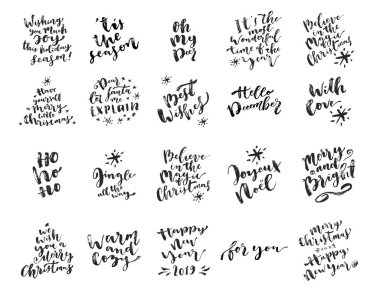 Wishing
you Much
Joy
this holiday
season!
'tis
the
season
oh
my
Deer
It's the
most
wonderful
time of the
year
Believe
in the
Magic of
Christmas
Have
yourself
a Merry
little
Christmas
Dear
Santa
let me
EXPLAIN
Best
Wishes
Hello
December
With
Love
Ho
Ho
Ho
Jingle
all the
way
Believe
in the
Magic of
Christmas
Joyeux
Noël
Merry
and
Bright
We
Wish
you a
Merry
Christmas
Warm
and
Cozy
Happy
New
Year
2019
for you
Merry
Christmas
and
Happy
New Year